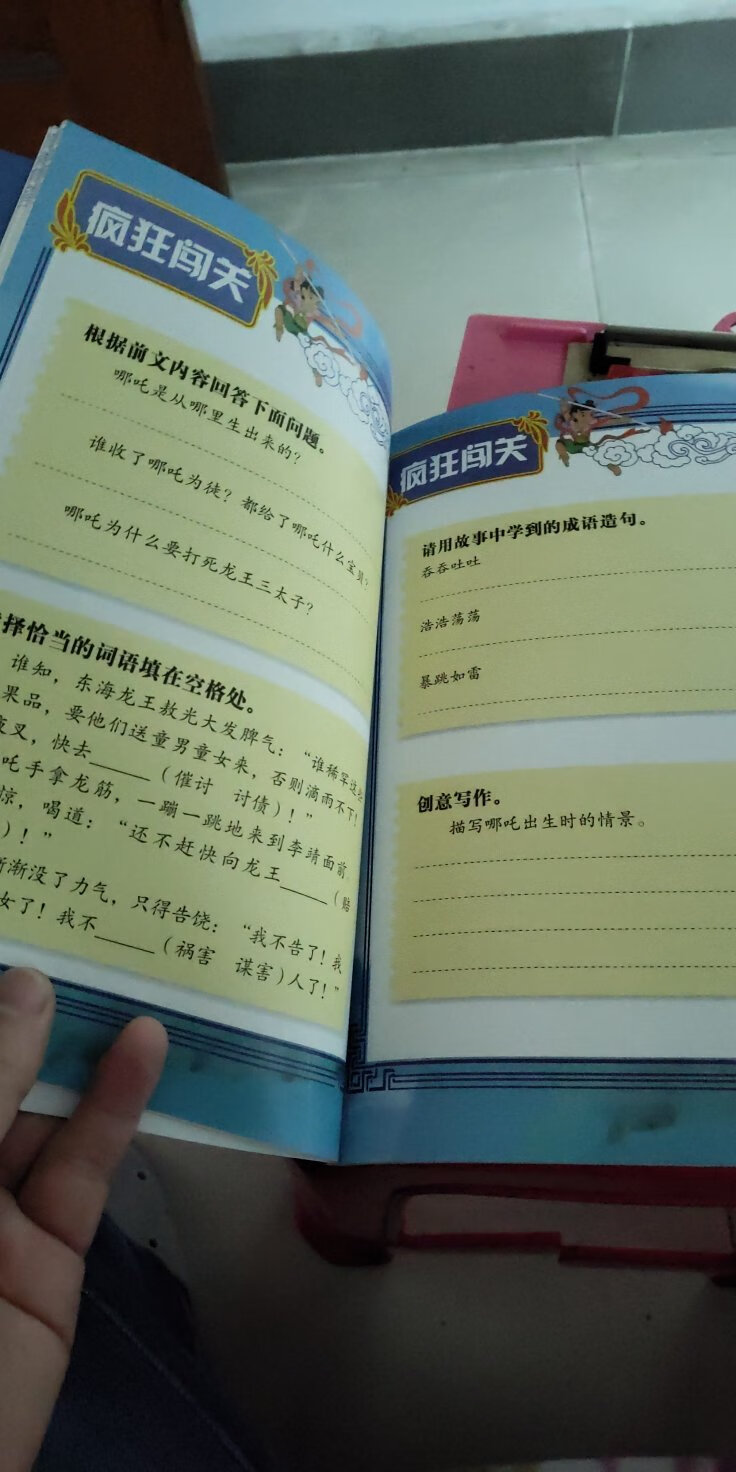 疯狂闯关
根据前文内容回答下面问题。
哪吒是从哪里生出来的?
谁收了哪吒为徒?都给了哪吒什么宝贝?
哪吒为什么要打死龙王三太子?
择恰当的词语填在空格处。
谁知,东海龙王敖光大发脾气:“谁稀罕这些
果品,要他们送童男童女来,否则滴雨不下!
夜叉,快去_____(催讨 讨债)!”
吒手拿龙筋,一蹦一跳地来到李靖面前
惊,喝道:“还不赶快向龙王_____(赔
)!”
渐渐没了力气,只得告饶:“我不告了!我
女了!我不_____(祸害 谋害)人了!”
疯狂闯关
请用故事中学到的成语造句。
吞吞吐吐
浩浩荡荡
暴跳如雷
创意写作。
描写哪吒出生时的情景。